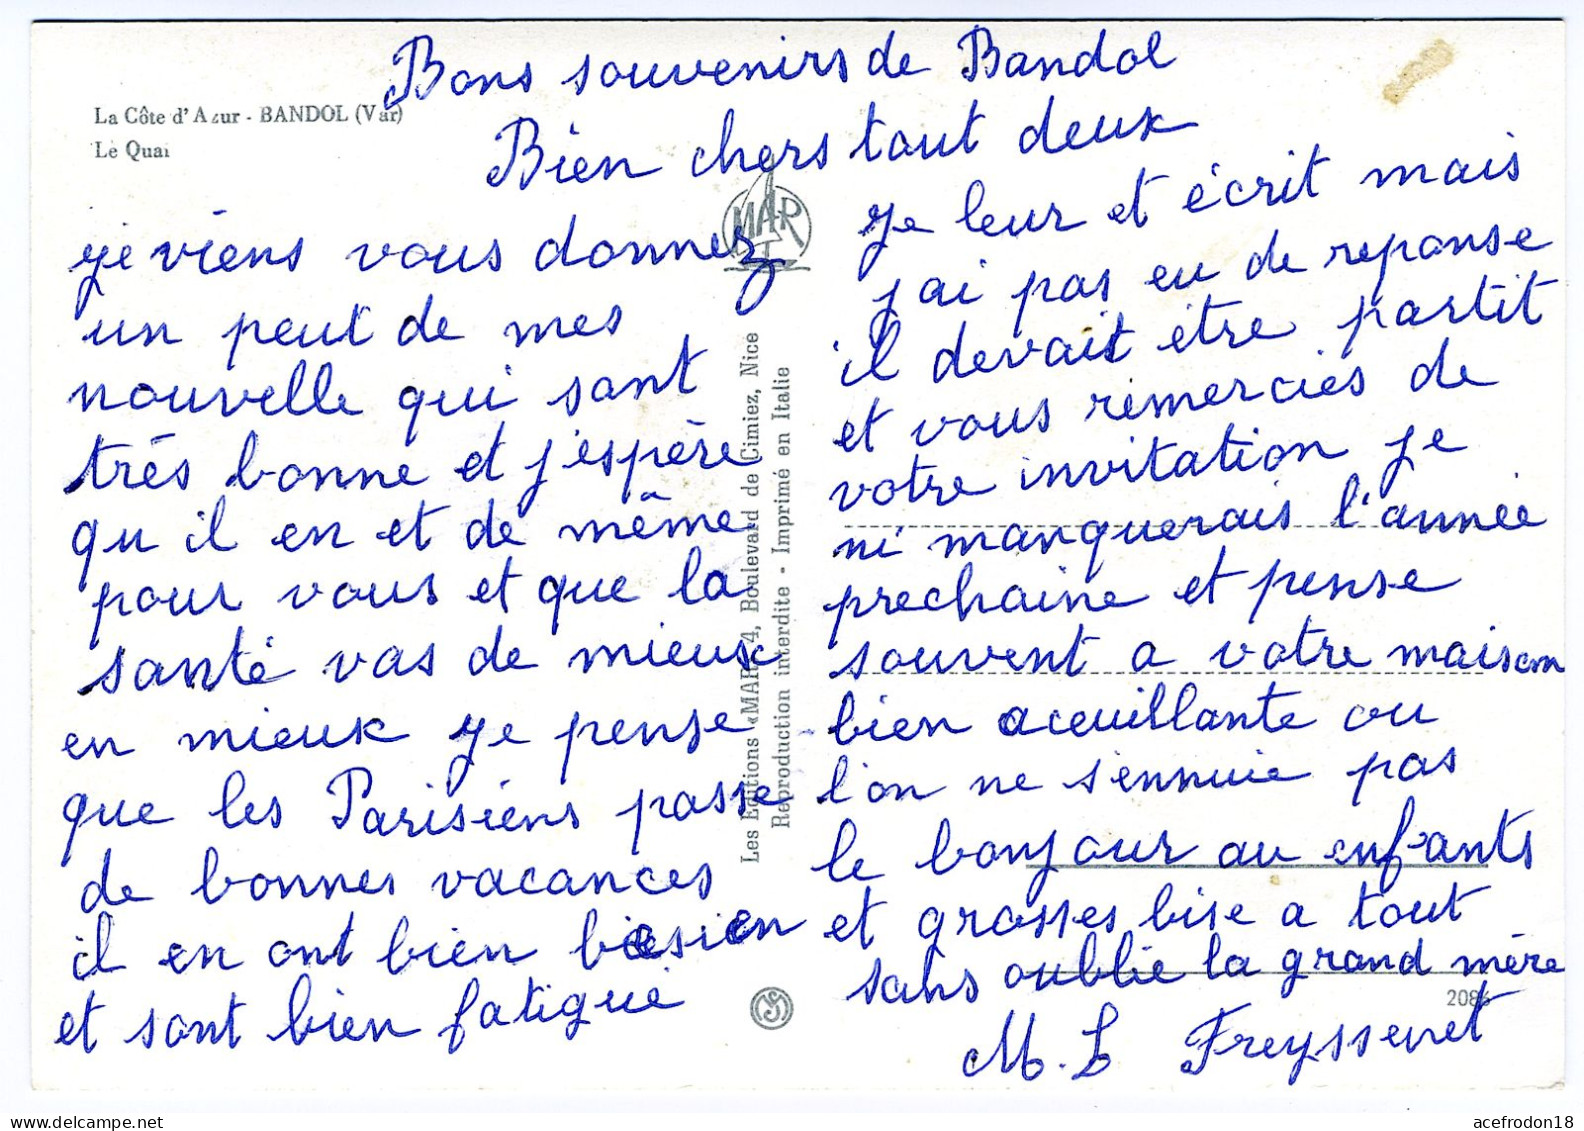 La Côte d'Azur - BANDOL (Var)
Le Quai
Bons souvenirs de Bandol
Bien chers tout deux
je viens vous donnez
un peut de mes
nouvelle qui sont
très bonne et j'espère
qu il en et de même
pour vous et que la
santé vas de mieux
en mieux je pense
que les Parisiens passe
de bonnes vacances
il en ont bien besien
et sont bien fatigué
je leur et écrit mais
j ai pas eu de reponse
il devait être partit
et vous remerciés de
votre invitation je
ni manquerais l'année
prechaine et pense
souvent a votre maison
bien aceuillante ou
l'on ne s'ennuie pas
le bonjour au enfants
et grosses bise a tout
sans oublie la grand mère
M. L Freyssenet
MAR
Les Editions «MAR» 4, Boulevard de Cimiez, Nice
Reproduction interdite - Imprimé en Italie
2086
acefrodon18